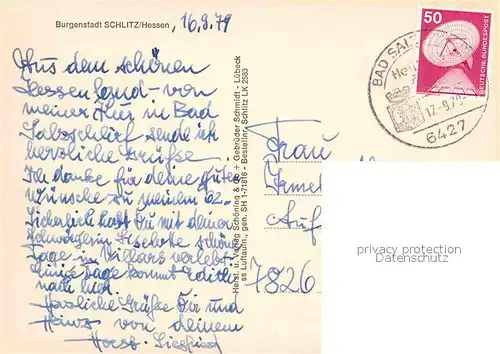 Burgenstadt SCHLITZ/Hessen
16.8.79
Aus dem schönen
Hessenland - von
meiner Kur in Bad
Salzschlirf sende ich
herzliche Grüße.
Ich danke für deine guten
Wünsche zu meinem 62.
Sicherlich hast Du mit deiner
Schwägerin Liselotte schöne
Tage in Villars verlebt.
Einige Tage kommt Edith
nach hier.
Herzliche Grüße Dir und
Heinz von deinem
Horst-Siegfried
Herst. u. Verlag Schöning & Co + Gebrüder Schmidt - Lübeck
ss Luftaufn., gen. SH 1-71816 - Bestellnr. Schlitz LK 2583
50
DEUTSCHE BUNDESPOST
BAD SALZ
17.-8.79
6427
Frau
Auf
7826
privacy protection
Datenschutz